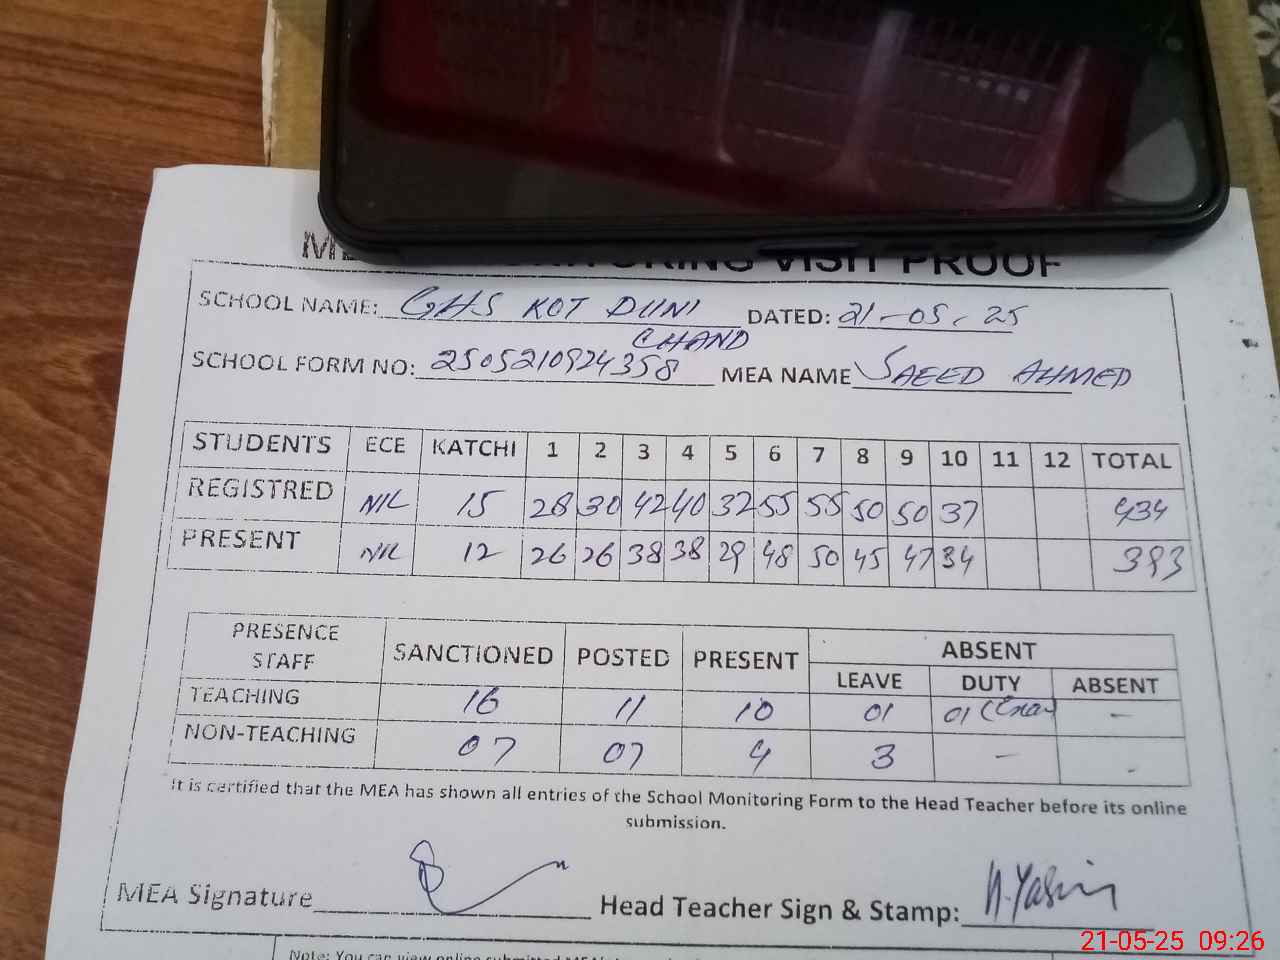 MONITORING VISIT PROOF
SCHOOL NAME: GHS KOT DUNI CHAND DATED: 21-05-25
SCHOOL FORM NO: 2505210924358 MEA NAME SAEED AHMED
STUDENTS ECE KATCHI 1 2 3 4 5 6 7 8 9 10 11 12 TOTAL
REGISTRED NIL 15 28 30 42 40 32 55 55 50 50 37 434
PRESENT NIL 12 26 26 38 38 29 48 50 45 47 34 393
PRESENCE STAFF SANCTIONED POSTED PRESENT ABSENT
LEAVE DUTY ABSENT
TEACHING 16 11 10 01 01 -
NON-TEACHING 07 07 4 3 - -
It is certified that the MEA has shown all entries of the School Monitoring Form to the Head Teacher before its online
submission.
MEA Signature Head Teacher Sign & Stamp: M.Yasin
Note: You can view online submitted
21-05-25 09:26